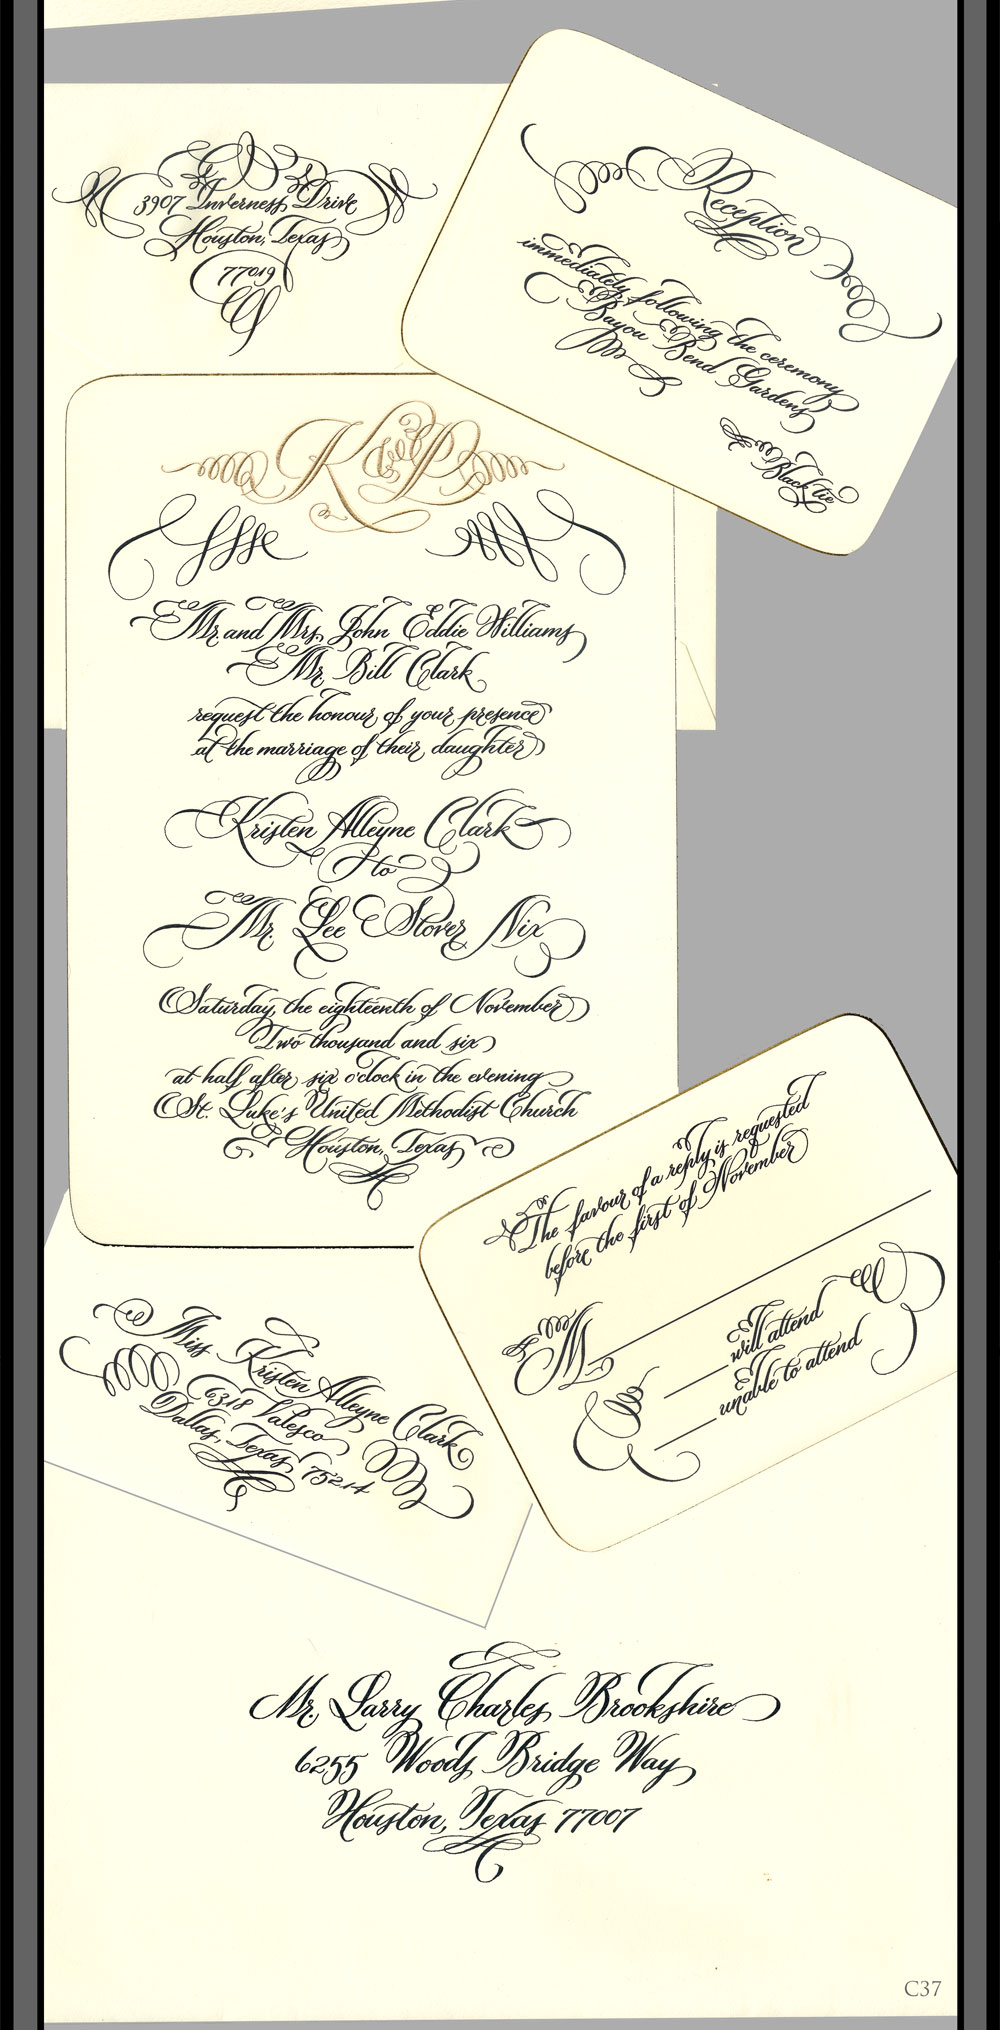 3907 Inverness Drive
Houston, Texas
77019
Reception
immediately following the ceremony
Bayou Bend Gardens
Black tie
Mr. and Mrs. John Eddie Williams
Mr. Bill Clark
request the honour of your presence
at the marriage of their daughter
Kristen Alleyne Clark
to
Mr. Lee Stover Nix
Saturday, the eighteenth of November
Two thousand and six
at half after six o'clock in the evening
St. Luke's United Methodist Church
Houston, Texas
The favour of a reply is requested
before the first of November
M
will attend
unable to attend
Miss Kristen Alleyne Clark
6318 Valesco
Dallas, Texas 75214
Mr. Larry Charles Brookshire
6255 Woods Bridge Way
Houston, Texas 77007
C37